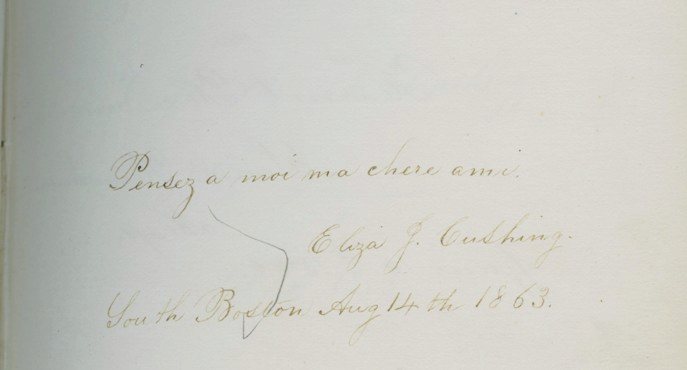 Pensez a moi ma chere ami.
Eliza J. Cushing.
South Boston Aug 14th 1863.